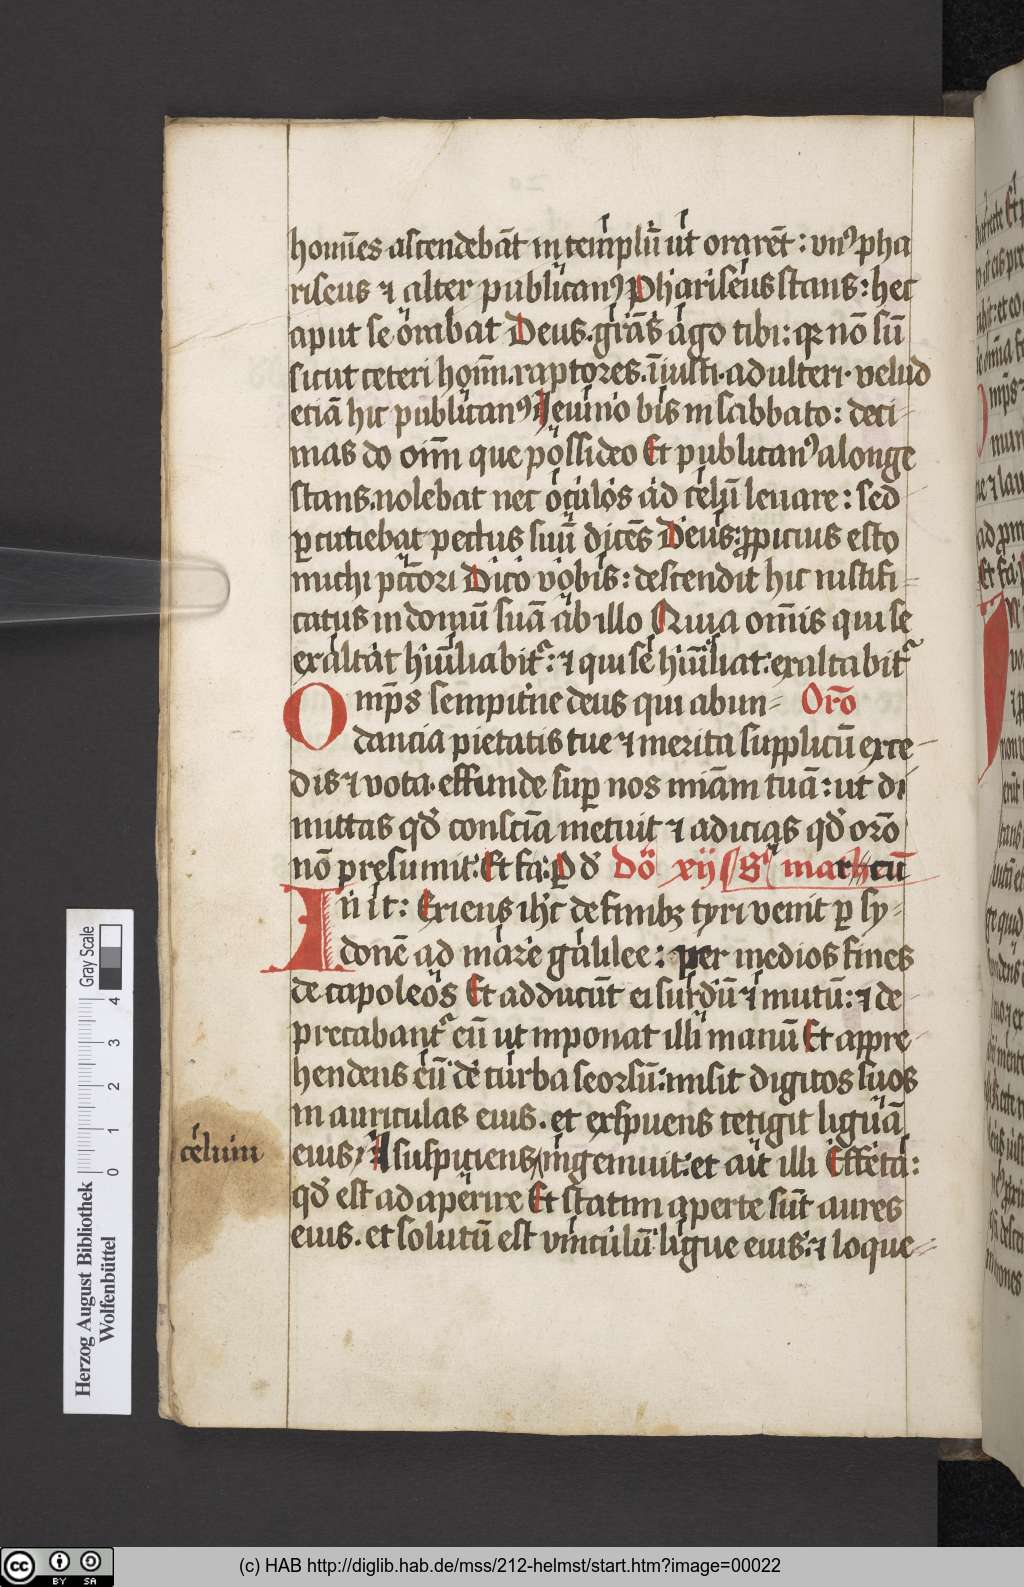 homīes ascendebāt in templū ut orarēt : vnꝰ pha
riseus ⁊ alter publicanꝰ Phariseus stans : hec
aput se orabat Deus . grās ago tibi : qꝛ nō sū
sicut ceteri homīn . raptores . iniusti . adulteri . velud
etiā hic publicanꝰ Ieiuno bis in sabbato : deci-
mas do oīm que possideo Et publicanꝰ a longe
stans . nolebat nec oculos ad celū leuare : sed
ꝑcutiebat pectus suū dicēs Deus : ꝓpicius esto
michi pctōri Dico vobis : descendit hic iustifi-
catus in domū suā ab illo Quia omīs qui se
exaltat humiliabitᷣ : ⁊ qui se humiliat : exaltabitᷣ
Omps sempitne deus qui abun- Oro
dancia pietatis tue ⁊ merita supplicū exce-
dis ⁊ vota . effunde suꝑ nos miām tuā : ut di
mittas qd conscīa metuit ⁊ adicias qd orō
nō presumit . Et fa : P d Do xij S marcū
In it : Exiens ihc de finibꝫ tyri venit ꝑ sy-
donē ad mare galilee : per medios fines
decapoleos Et adducūt ei surdū ⁊ mutū : ⁊ de
precabantᷣ eū ut inponat illi manū Et appre-
hendens eū de turba seorsū : misit digitos suos
in auriculas eius . et exspuens tetigit liguā
celum
eius suspiciens ingemuit : et ait illi Effeta :
qd est adaperire Et statim aperte sūt aures
eius . et solutū est vinculū ligue eius : ⁊ loque-
Gray Scale
0 1 2 3 4
Herzog August Bibliothek
Wolfenbüttel
cc BY SA
(c) HAB http://diglib.hab.de/mss/212-helmst/start.htm?image=00022